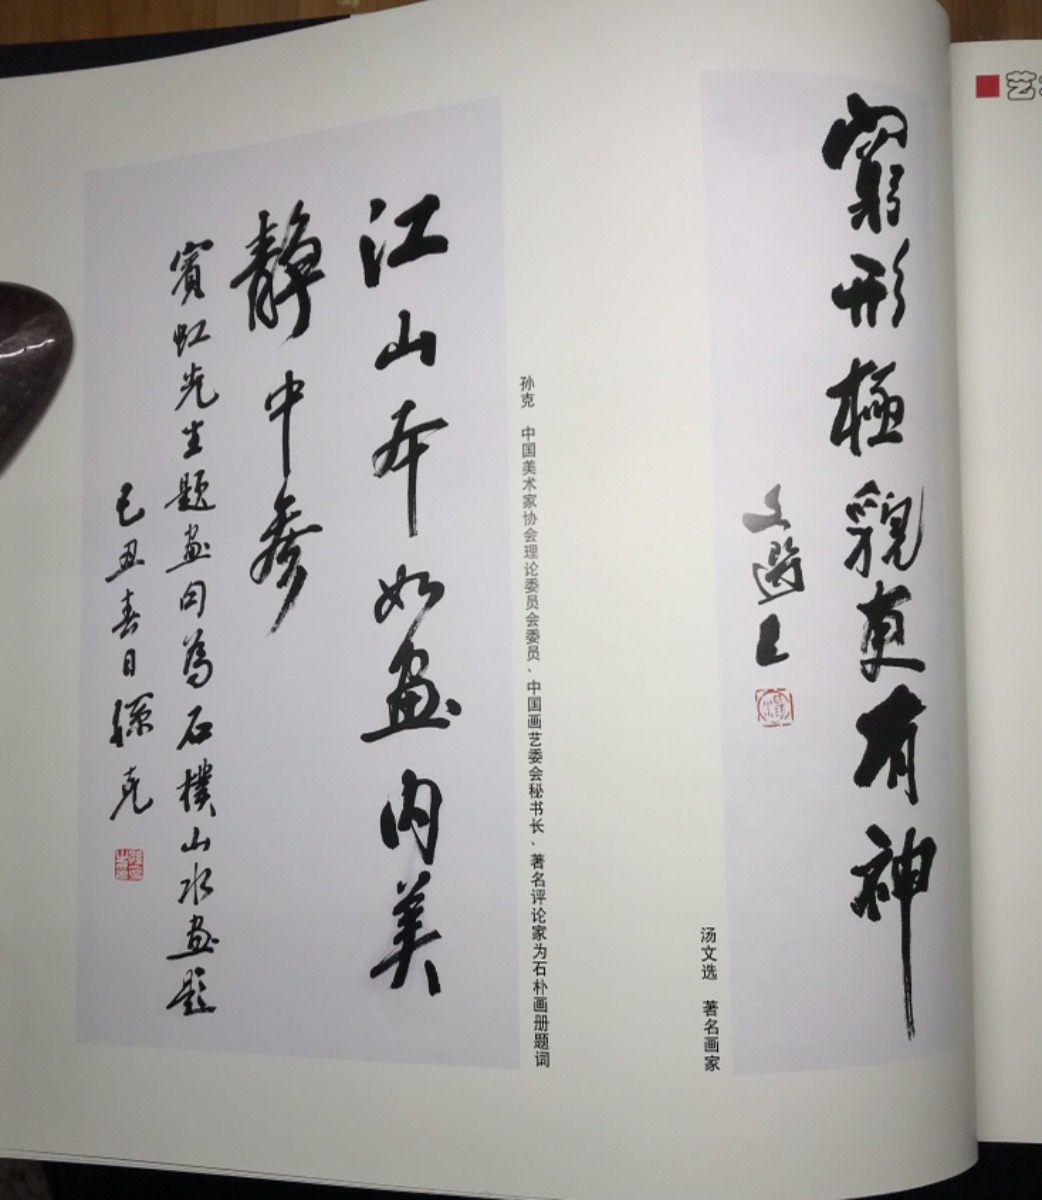 窮形極貌更有神
文選
汤文选 著名画家
孙克 中国美术家协会理论委员会委员、中国画艺委会秘书长、著名评论家为石朴画册题词
江山本如画内美
静中参
賓虹先生題画句為石樸山水画題
己丑春日孫克
艺